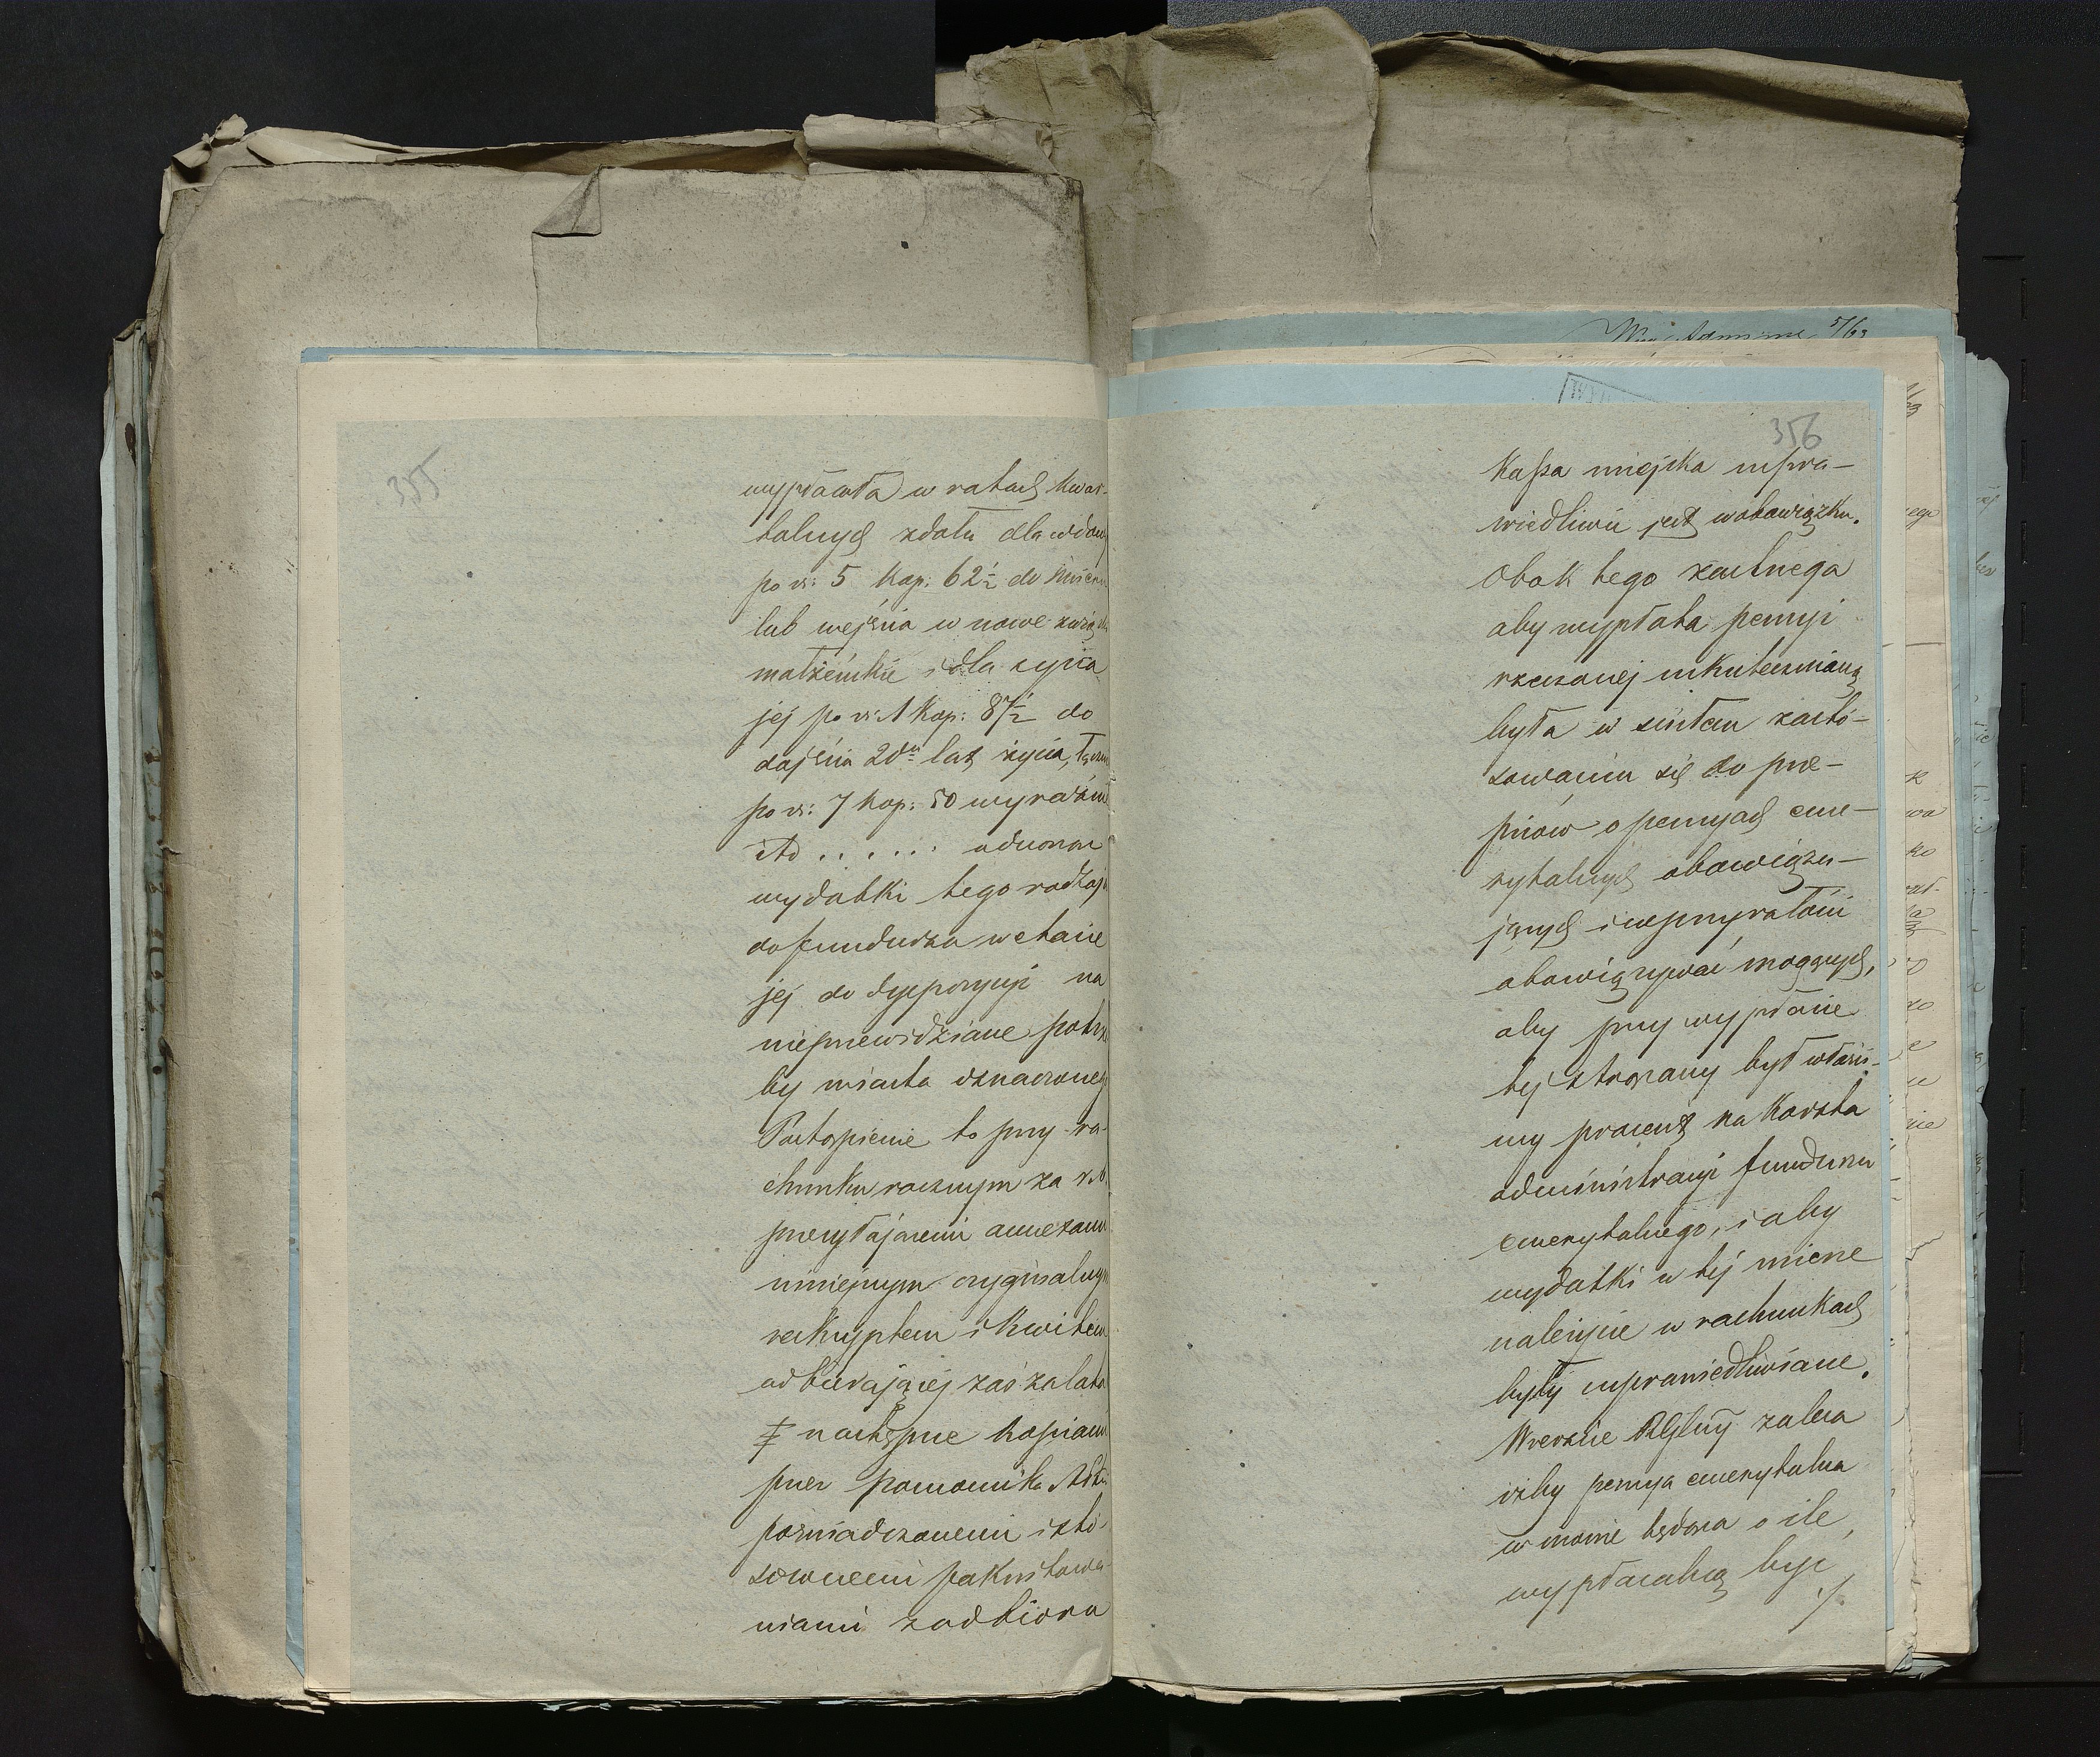 355
wypłacała w ratach kwar-
talnych zdołu dla wdowy
po rs: 5 kop: 62½ do śmierci
lub wejścia w nowe związki
małżeńskie i dla syna
jej po rs: 1 kop: 87½ do
dojścia 20tu lat życia, łącznie
po rs: 7 kop: 50 wyraźnie
itd ...... odnosząc
wydatki tego rodzaju
do funduszu w etacie
jej do dyspozycji na
nieprzewidziane potrze
by miasta oznaczonego
Postąpienie to przy ra-
chunku rocznym za r.b.
przesyłającemi annexami
niniejszym oryginalnym
reskryptem i kwitem
odbierającej zaś za lata
następne kopiami
przez pomocnika
poświadczonemi i sto-
sownemi pokwitowa-
niami z odbioru
356
Kassa miejska uspra-
wiedliwić jest w obowiązku.
Obok tego zastrzega
aby wypłata pensyi
rzeczonej uskutecznianą
była w ścisłem zasto-
sowaniu się do prze-
pisów o pensyach eme-
rytalnych obowiązu-
jących i w przyszłości
obowiązywać mogących,
aby przy wypłacie
tej strącany był właści-
wy procent na korzść
administracyi funduszu
emerytalnego, i aby
wydatki w tej mierze
należycie w rachunkach
były usprawiedliwiane.
Wreszcie zaleca
iżby pensya emerytalna
w mowie będąca o ile
wypłacalną być
./.